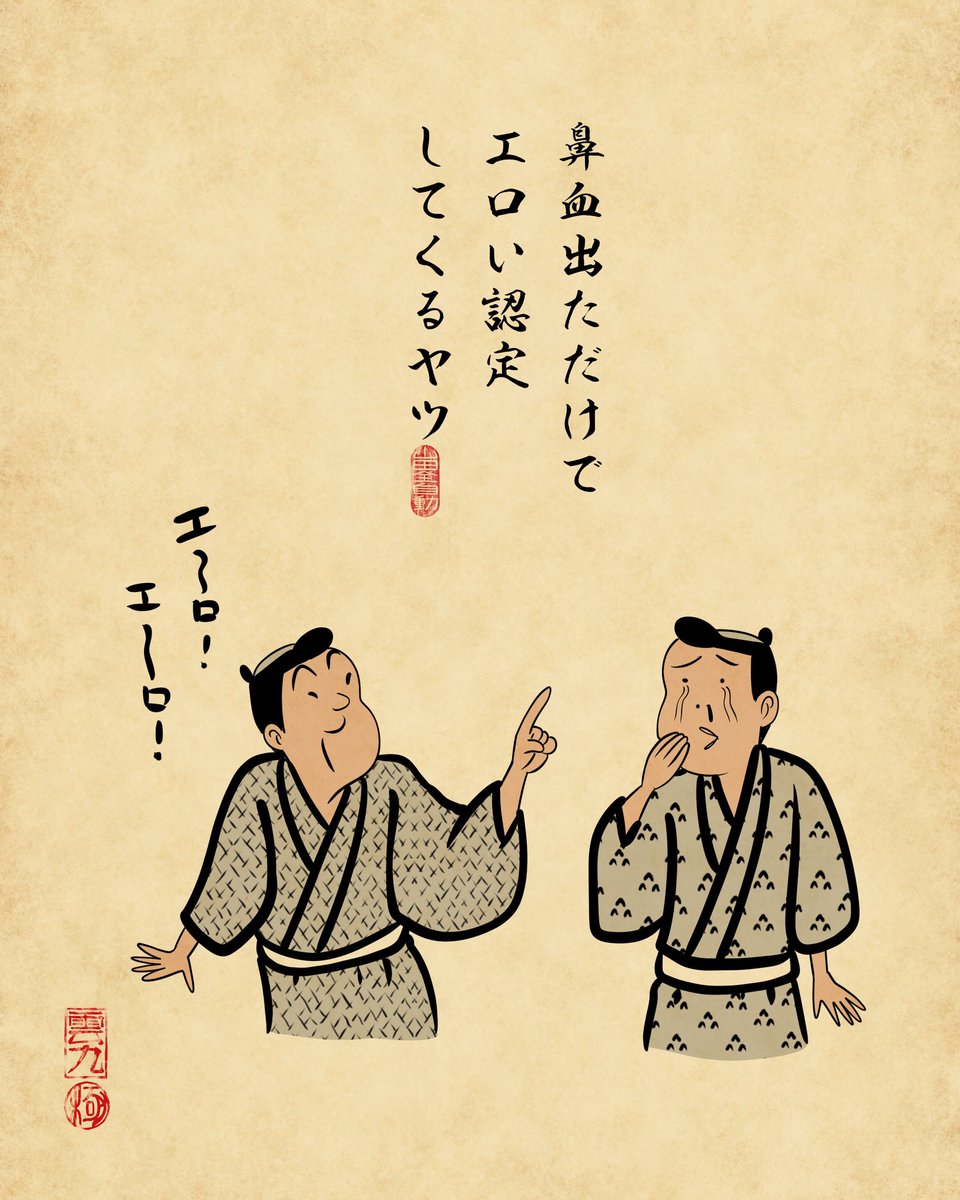 鼻血出ただけで
エロい認定
してくるヤツ
エ〜ロ!
エ〜ロ!